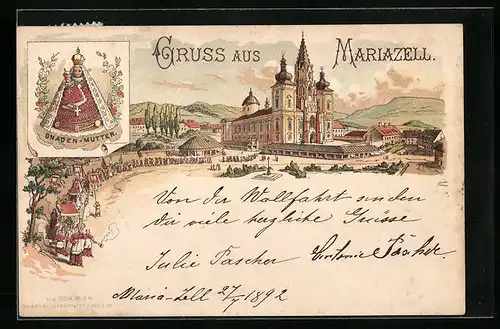 GRUSS AUS MARIAZELL.
GNADEN-MUTTER.
Von der Wallfahrt senden
dir viele herzliche Grüsse
Julie Tascher Tascher
Maria-Zell 27/5 1892